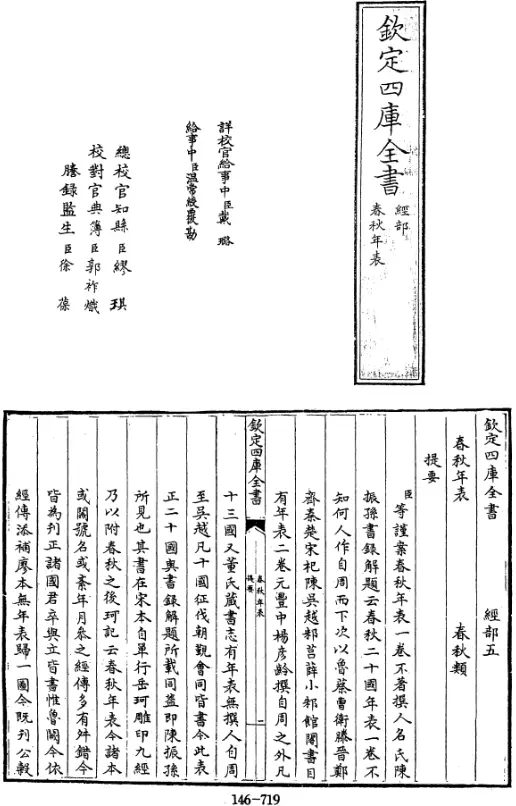 欽定四庫全書
經部
春秋年表
詳校官給事中臣戴璐
給事中臣溫常綬覆勘
總校官知縣臣繆琪
校對官典簿臣郭祚熾
謄錄監生臣徐葆
欽定四庫全書
經部五
春秋年表
春秋類
提要
臣等謹案春秋年表一卷不著撰人名氏陳
振孫書錄解題云春秋二十國年表一卷不
知何人作自周而下次以魯蔡曹衛滕晉鄭
齊秦楚宋杞陳吳越邾莒薛小邾館閣書目
有年表二卷元豐中楊彥齡撰自周之外凡
欽定四庫全書
春秋年表
提要
一
十三國又董氏藏書志有年表無撰人自周
至吳越凡十國征伐朝覲會同皆書今此表
正二十國與書錄解題所載同蓋即陳振孫
所見也其書在宋本自單行岳珂雕印九經
乃以附春秋之後珂記云春秋年表今諸本
或闕號名或紊年月參之經傳多有舛錯今
皆為刊正諸國君卒與立皆書惟魯闕今依
經傳添補廖本無年表歸一圖今既刊公穀
146-719